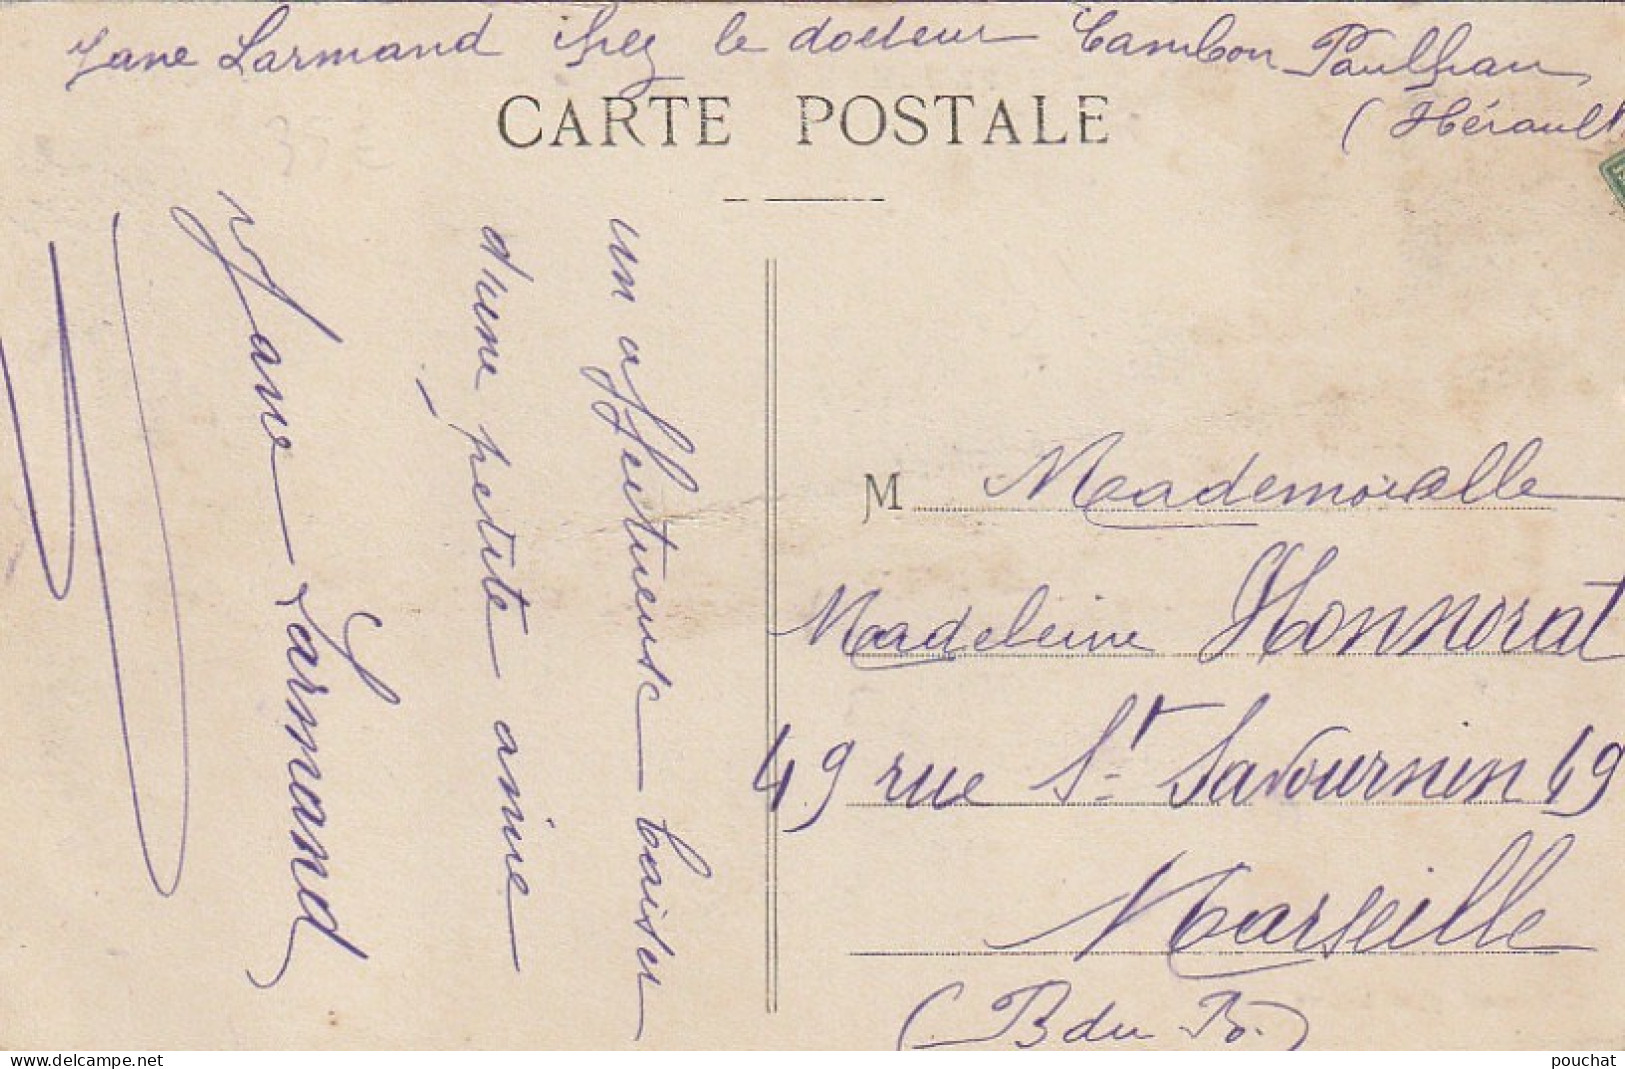 Jane Larmand chez le docteur Cambon Paulhan
(Hérault
CARTE POSTALE
un affectueuse baiser
d'une petite amie
Jane Larmand
M Mademoiselle
Madeleine Honnorat
49 rue St Savournin 49
Marseille
(B du R.)
delcampe.net
pouchat